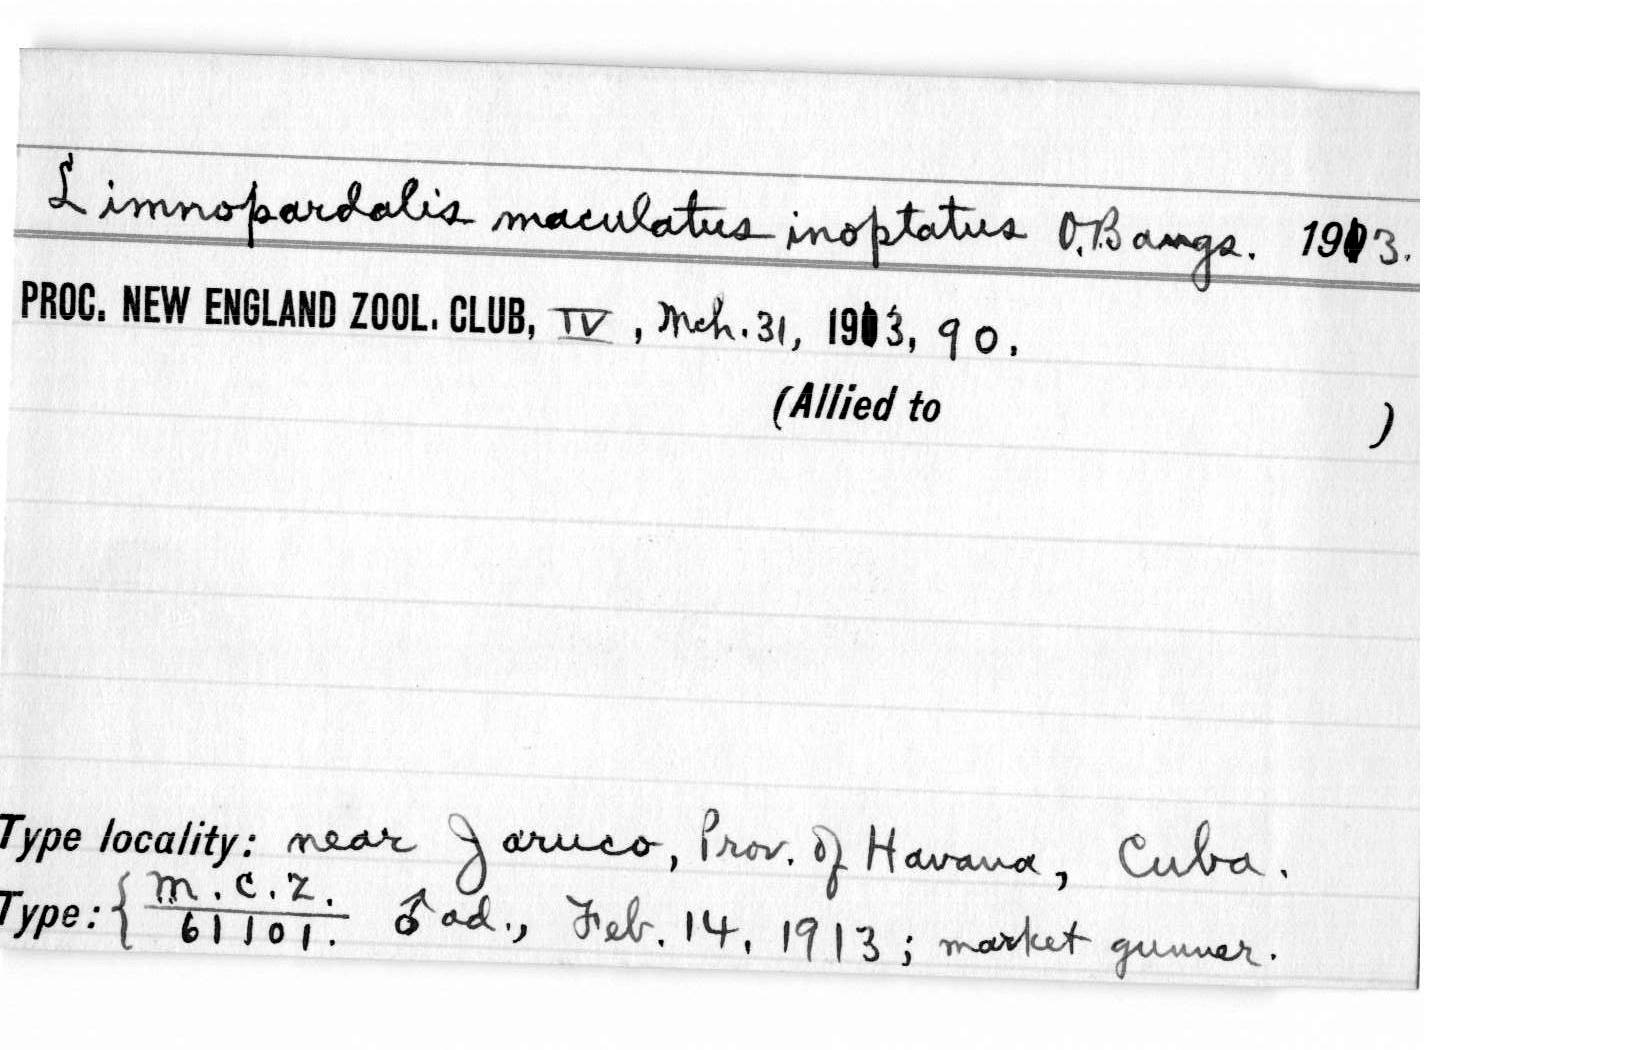 Limnopardalis maculatus inoptatus O. Bangs. 1913.
PROC. NEW ENGLAND ZOOL. CLUB, IV, Mch. 31, 1913, 90.
(Allied to )
Type locality: near Jaruco, Prov. of Havana, Cuba.
Type: { M.C.Z. 61101. ♂ ad., Feb. 14, 1913; market gunner.